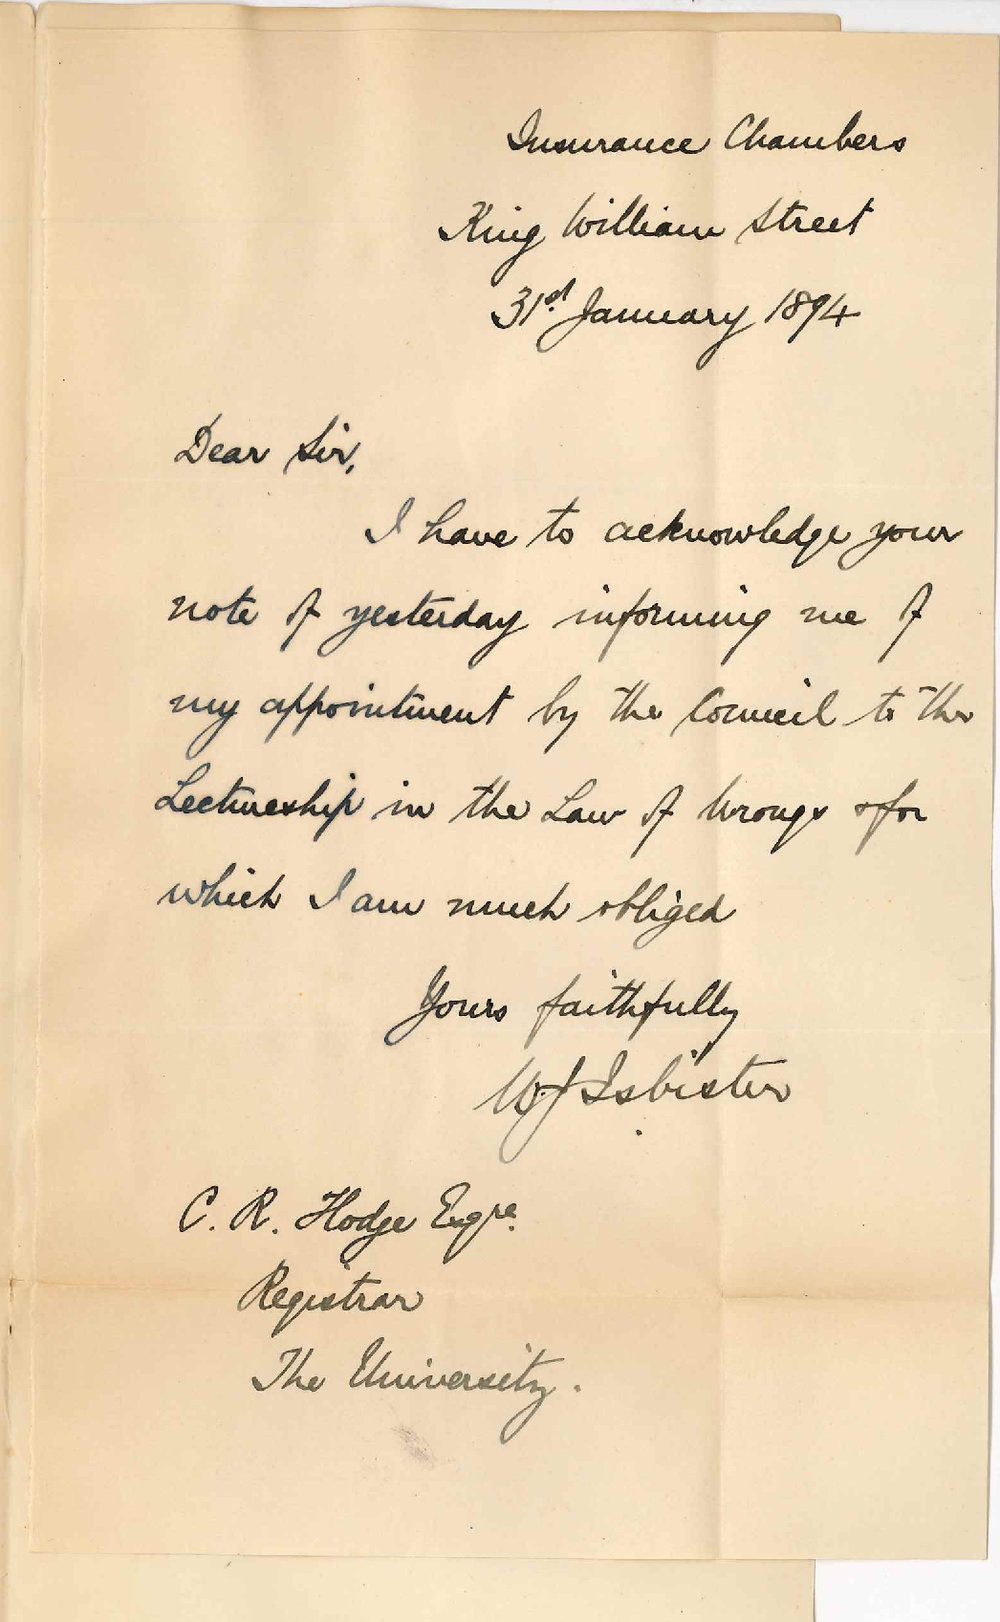 Insurance Chambers
King William Street
31st. January 1894
Dear Sir,
I have to acknowledge your
note of yesterday informing me of
my appointment by the Council to the
Lectureship in the Law of Wrongs & for
which I am much obliged
Yours faithfully
W. J Isbister
C. R. Hodge Esqre.
Registrar
The University.